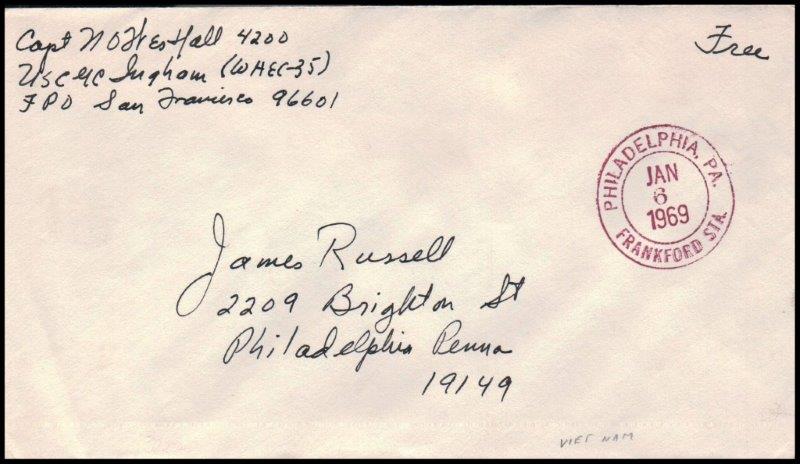 Capt N O Westfall 4200
USCGC Ingham (WHEC-35)
FPO San Francisco 96601
Free
PHILADELPHIA, PA.
JAN
6
1969
FRANKFORD STA.
James Russell
2209 Brighton St
Philadelphia Penna
19149
VIET NAM